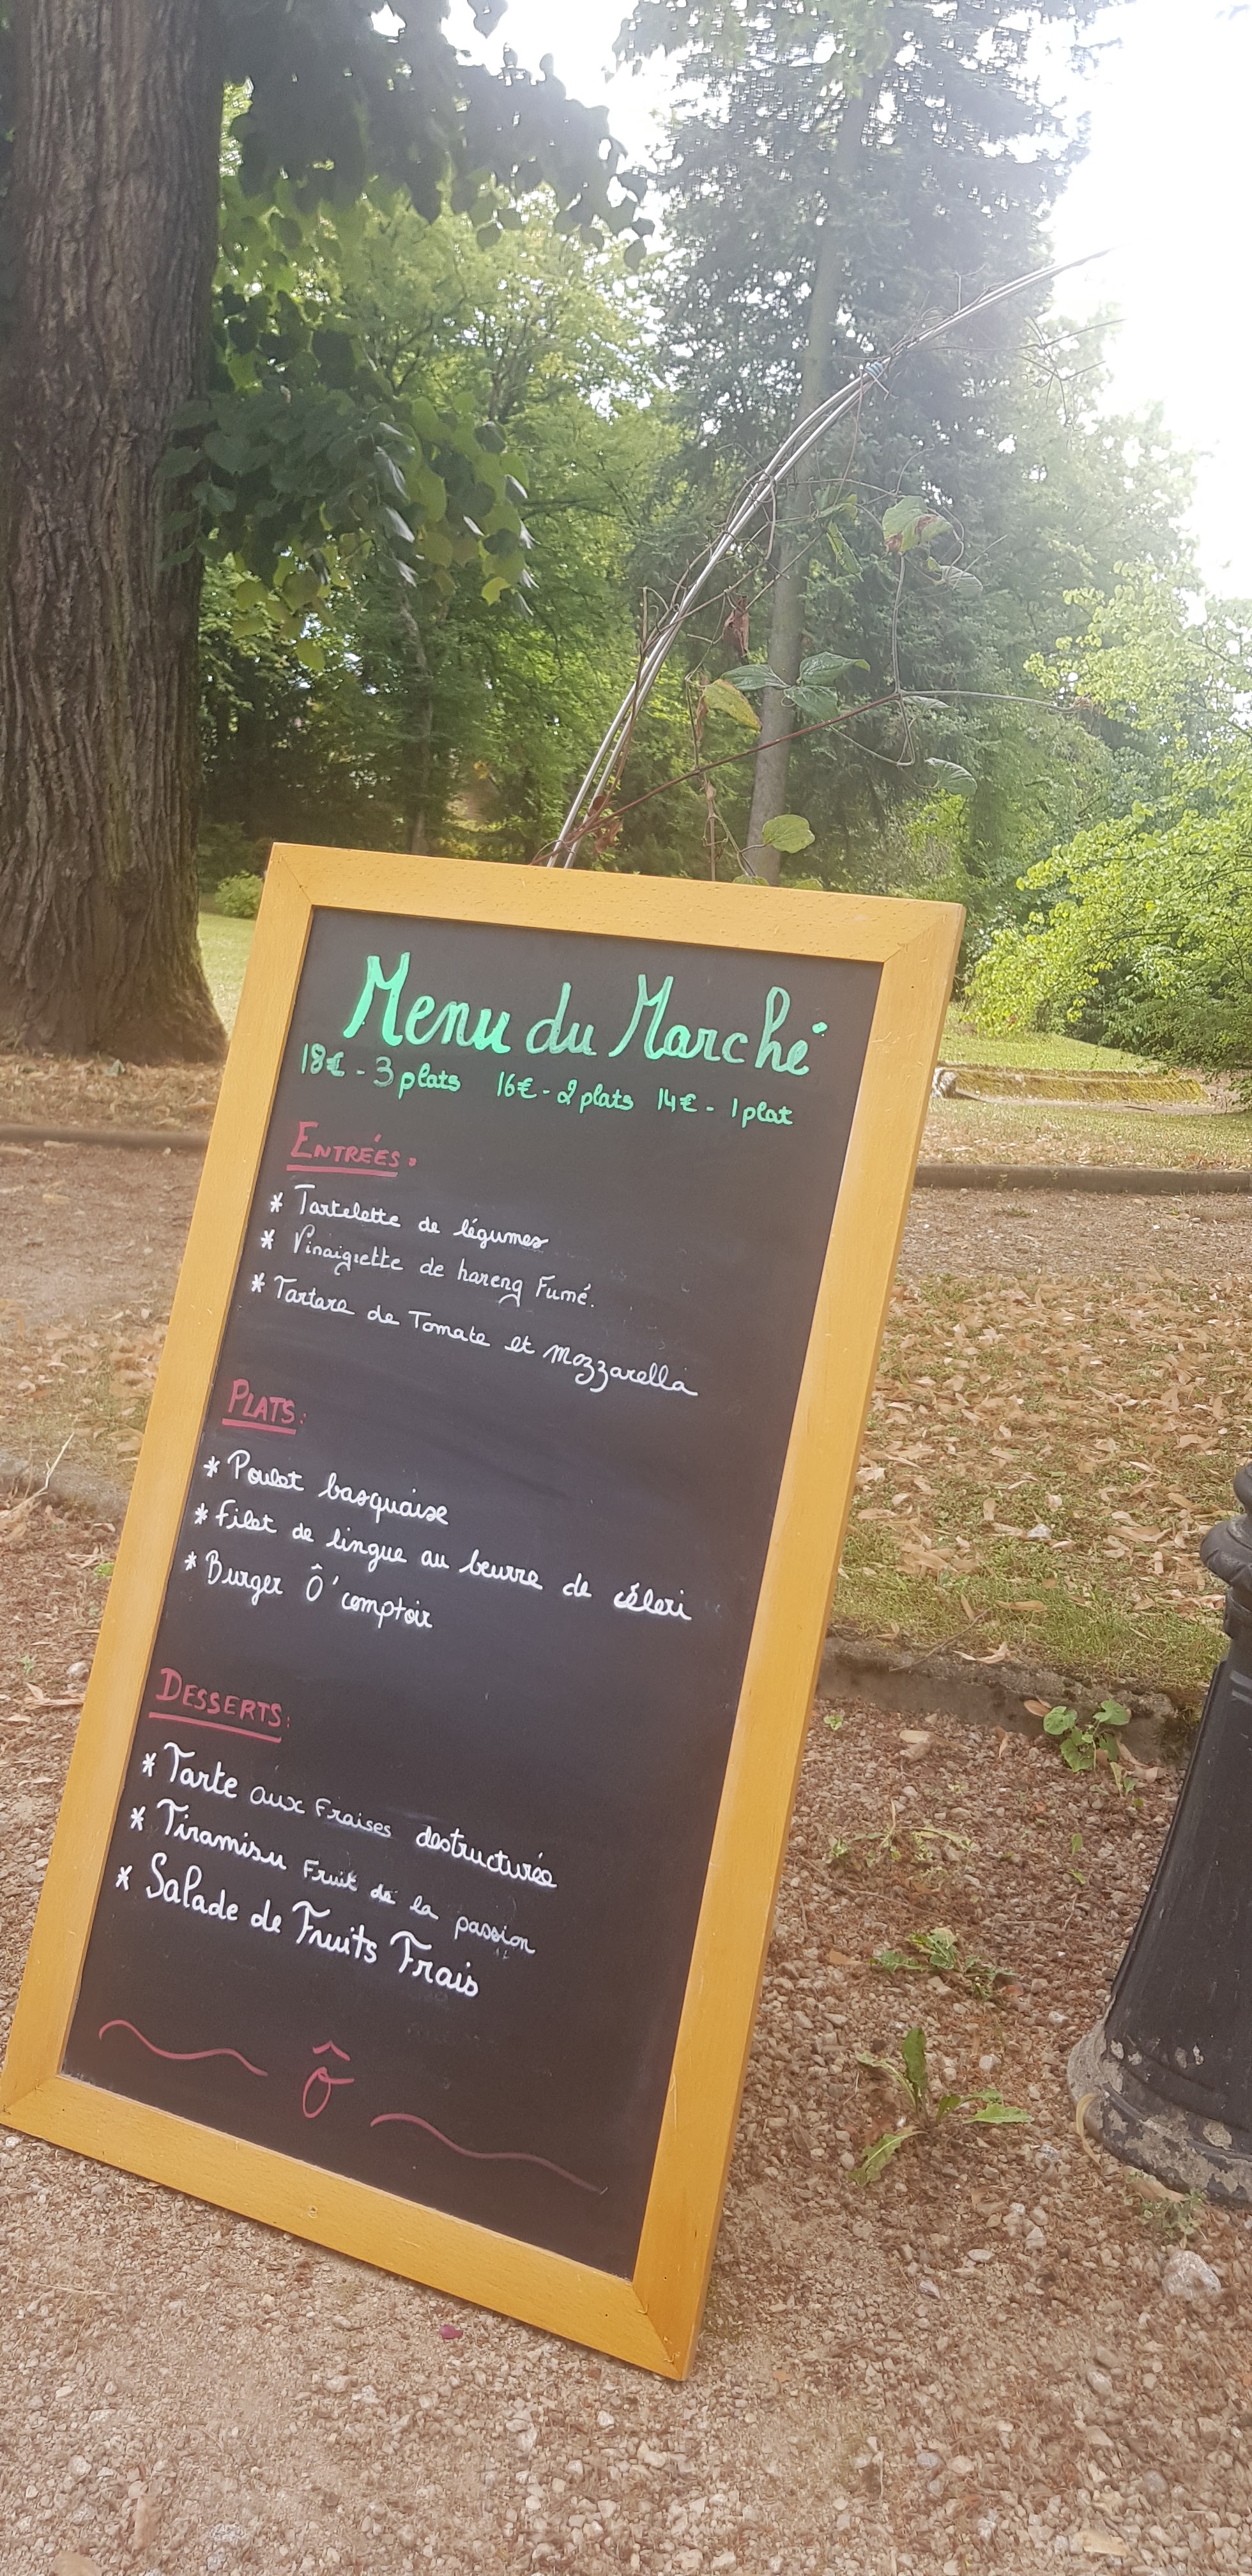 Menu du Marché
18€ - 3 plats 16€ - 2 plats 14€ - 1 plat
ENTRÉES.
* Tartelette de légumes
* Vinaigrette de hareng Fumé.
* Tartare de Tomate et mozzarella
PLATS:
* Poulet basquaise
* Filet de lingue au beurre de céleri
* Burger Ô'comptoir
DESSERTS:
* Tarte aux Fraises destructurée
* Tiramisu Fruit de la passion
* Salade de Fruits Frais
Ô